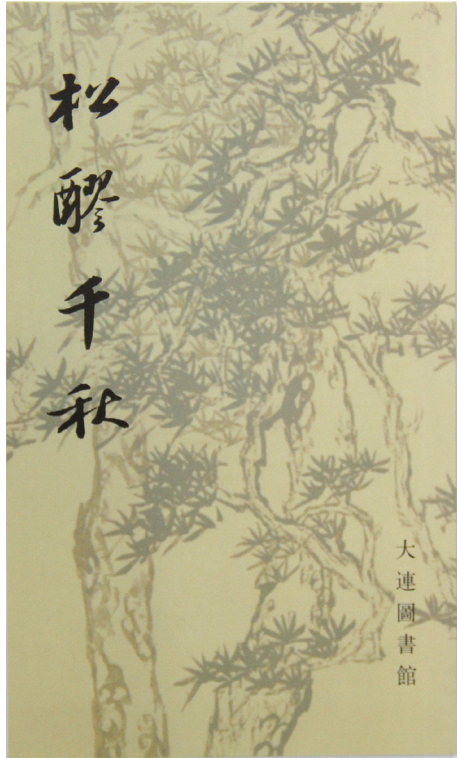 松醪千秋
大連圖書館